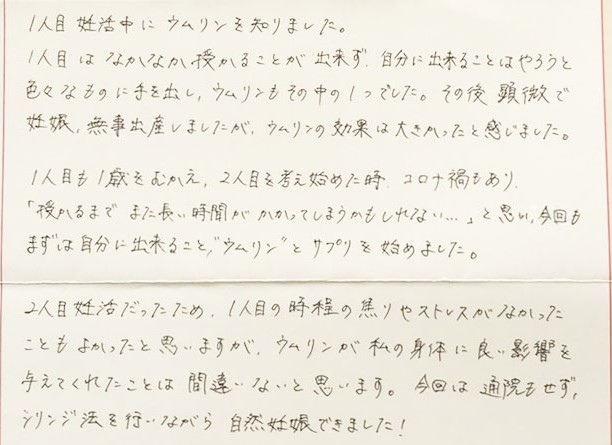 1人目妊活中にウムリンを知りました。
1人目はなかなか授かることが出来ず、自分に出来ることはやろうと
色々なものに手を出し、ウムリンもその中の1つでした。その後顕微で
妊娠、無事出産しましたが、ウムリンの効果は大きかったと感じました。
1人目も1歳をむかえ、2人目を考え始めた時、コロナ禍もあり、
「授かるまでまた長い時間がかかってしまうかもしれない…」と思い、今回も
まずは自分に出来ること、"ウムリン"とサプリを始めました。
2人目妊活だったため、1人目の時程の焦りやストレスがなかった
こともよかったと思いますが、ウムリンが私の身体に良い影響を
与えてくれたことは間違いないと思います。今回は通院もせず、
シリンジ法を行いながら自然妊娠できました!